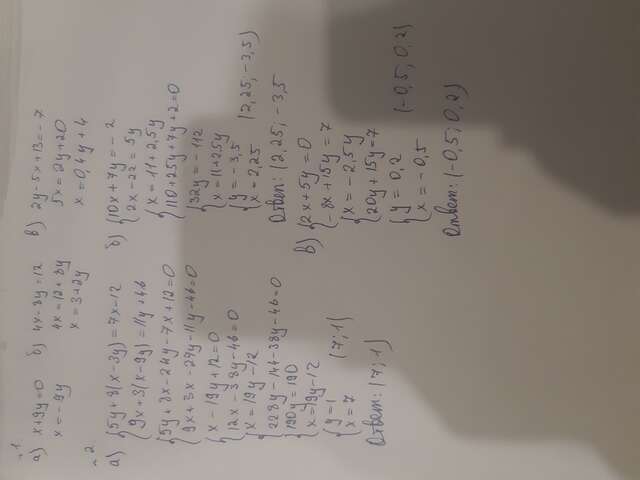 №1
а) x+9y=0
x=-9y
б) 4x-8y=12
4x=12+8y
x=3+2y
в) 2y-5x+13=-7
5x=2y+20
x=0,4y+4
№2
а) {5y+8(x-3y)=7x-12
9x+3(x-9y)=11y+46
{5y+8x-24y-7x+12=0
9x+3x-27y-11y-46=0
{x-19y+12=0
12x-38y-46=0
{x=19y-12
{228y-144-38y-46=0
{190y=190
x=19y-12
{y=1
x=7 (7;1)
Ответ: (7;1)
б) {10x+7y=-2
2x-22=5y
{x=11+2,5y
{110+25y+7y+2=0
{32y=-112
x=11+2,5y
{y=-3,5
x=2,25 (2,25;-3,5)
Ответ: (2,25;-3,5
в) {2x+5y=0
-8x+15y=7
{x=-2,5y
{20y+15y=7
{y=0,2
x=-0,5 (-0,5;0,2)
Ответ: (-0,5;0,2)